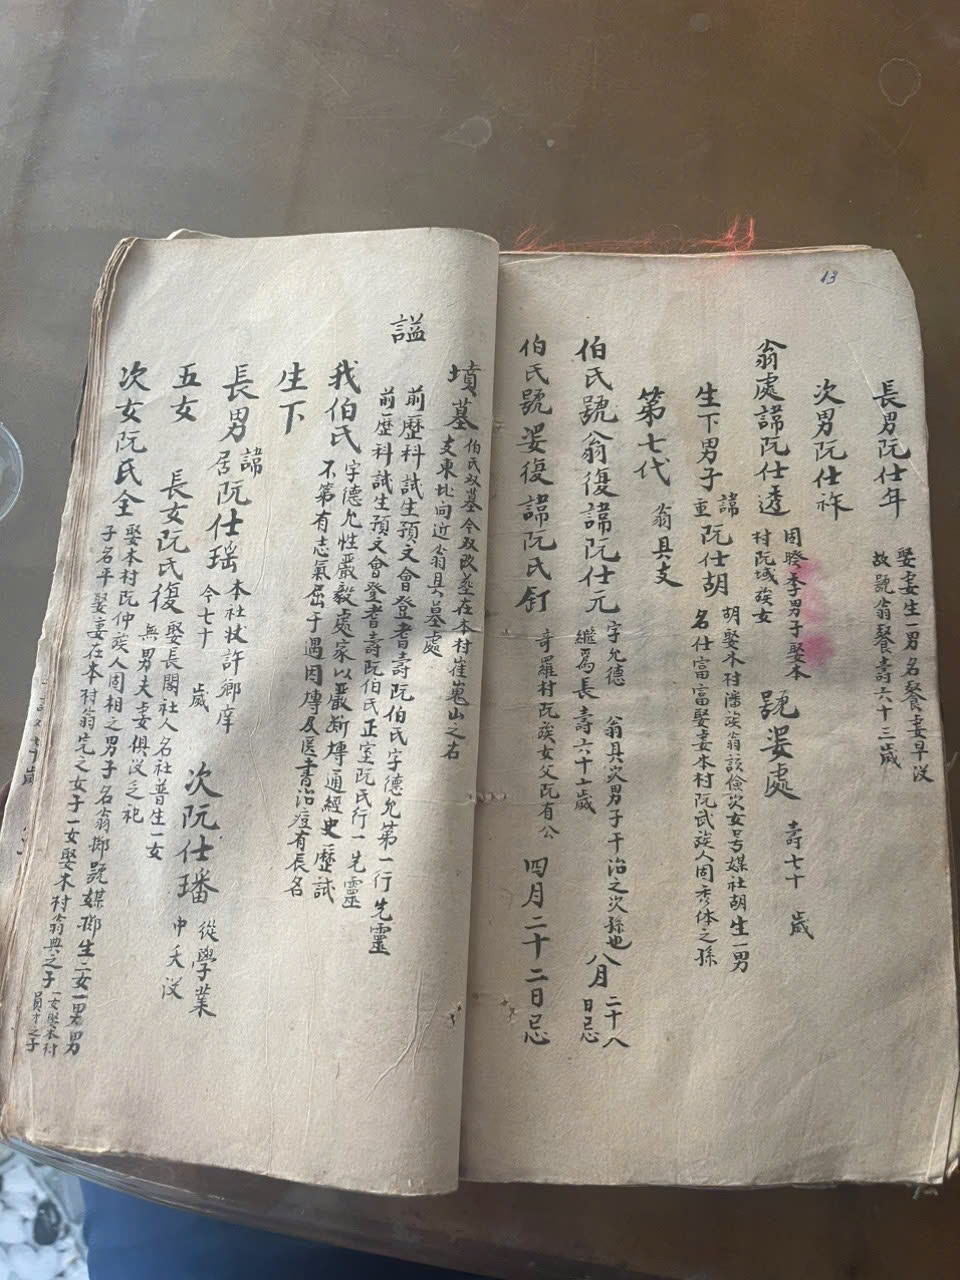 13
長男阮仕年 娶妻生一男名餐妻早沒
故號翁餐壽六十三歲
次男阮仕祚
翁處諱阮仕透 周暌季男子娶本
村阮域族女 號婆處 壽七十 歲
生下男子諱重阮仕胡 胡娶本村潘族翁該儉次女号媒社胡生一男
名仕富富娶妻本村阮武族人周秀休之孫
第七代 翁具支
伯氏號翁復諱阮仕元 字允德 翁具次男子干治之次孫也 八月二十八日忌
繼爲長壽六十二歲
伯氏號婆復諱阮氏釘 奇羅村阮族女父阮有公 四月二十二日忌
墳墓 伯氏双墓今双改葬在本村崔嵬山之右
支東北向近翁具墓處
謚 前歷科試生預文會登者壽阮伯氏字德允第一行先靈
前歷科試生預文會登者壽阮伯氏正室阮氏行一先靈
我伯氏 字德允性嚴毅處家以嚴斯博通經史歷試
不第有志氣屈于遇因博及医書治痘有長名
生下
長男諱居阮仕瑶 本社狀許鄉庠
今七十 歲 次阮仕璠 從學業
中夭沒
五女 長女阮氏復 娶長閣社人名社普生一女
無男夫妻俱沒之祀
次女阮氏全 娶本村阮仲族人周相之男子名翁擲號媒擲生二女一男男
子名平娶妻在本村翁完之女子一女娶本村翁典之子一女娶本村
員才之子